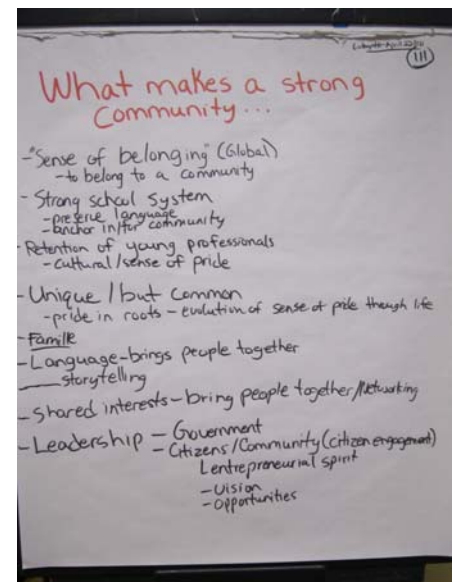 111
What makes a strong
Community...
- "Sense of belonging" (Global)
- to belong to a community
- Strong school system
- preserve language
- anchor in/for community
- Retention of young professionals
- cultural/sense of pride
- Unique / but common
- pride in roots - evolution of sense of pride through life
- Famille
- Language - brings people together
storytelling
- Shared interests - bring people together/Networking
- Leadership - Government
- Citizens/Community (citizen engagement)
entrepreneurial spirit
- Vision
- Opportunities